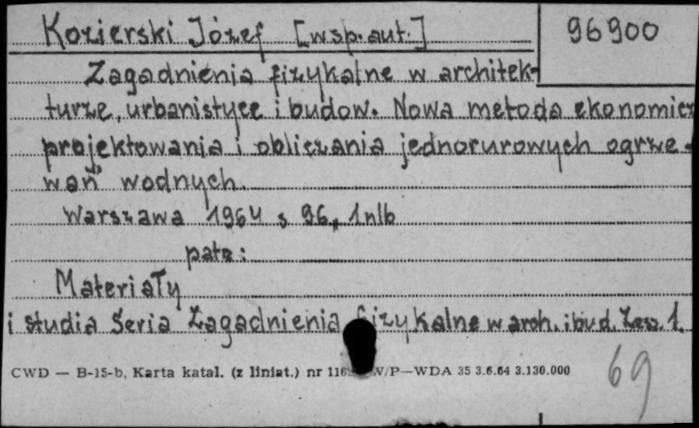 Kozierski Józef [wsp. aut.]
96900
Zagadnienia fizykalne w architek-
turze, urbanistyce i budow. Nowa metoda ekonomicz
projektowania i obliczania jednorurowych ogrze-
wań wodnych.
Warszawa 1964 s 96, 1 nlb
patz:
Materiały
i studia Seria Zagadnienia fizykalne w arch. i bud. Zesz. 1.
CWD — B-15-b, Karta katal. (z liniat.) nr W/P—WDA 35 3.6.64 3.130.000
69